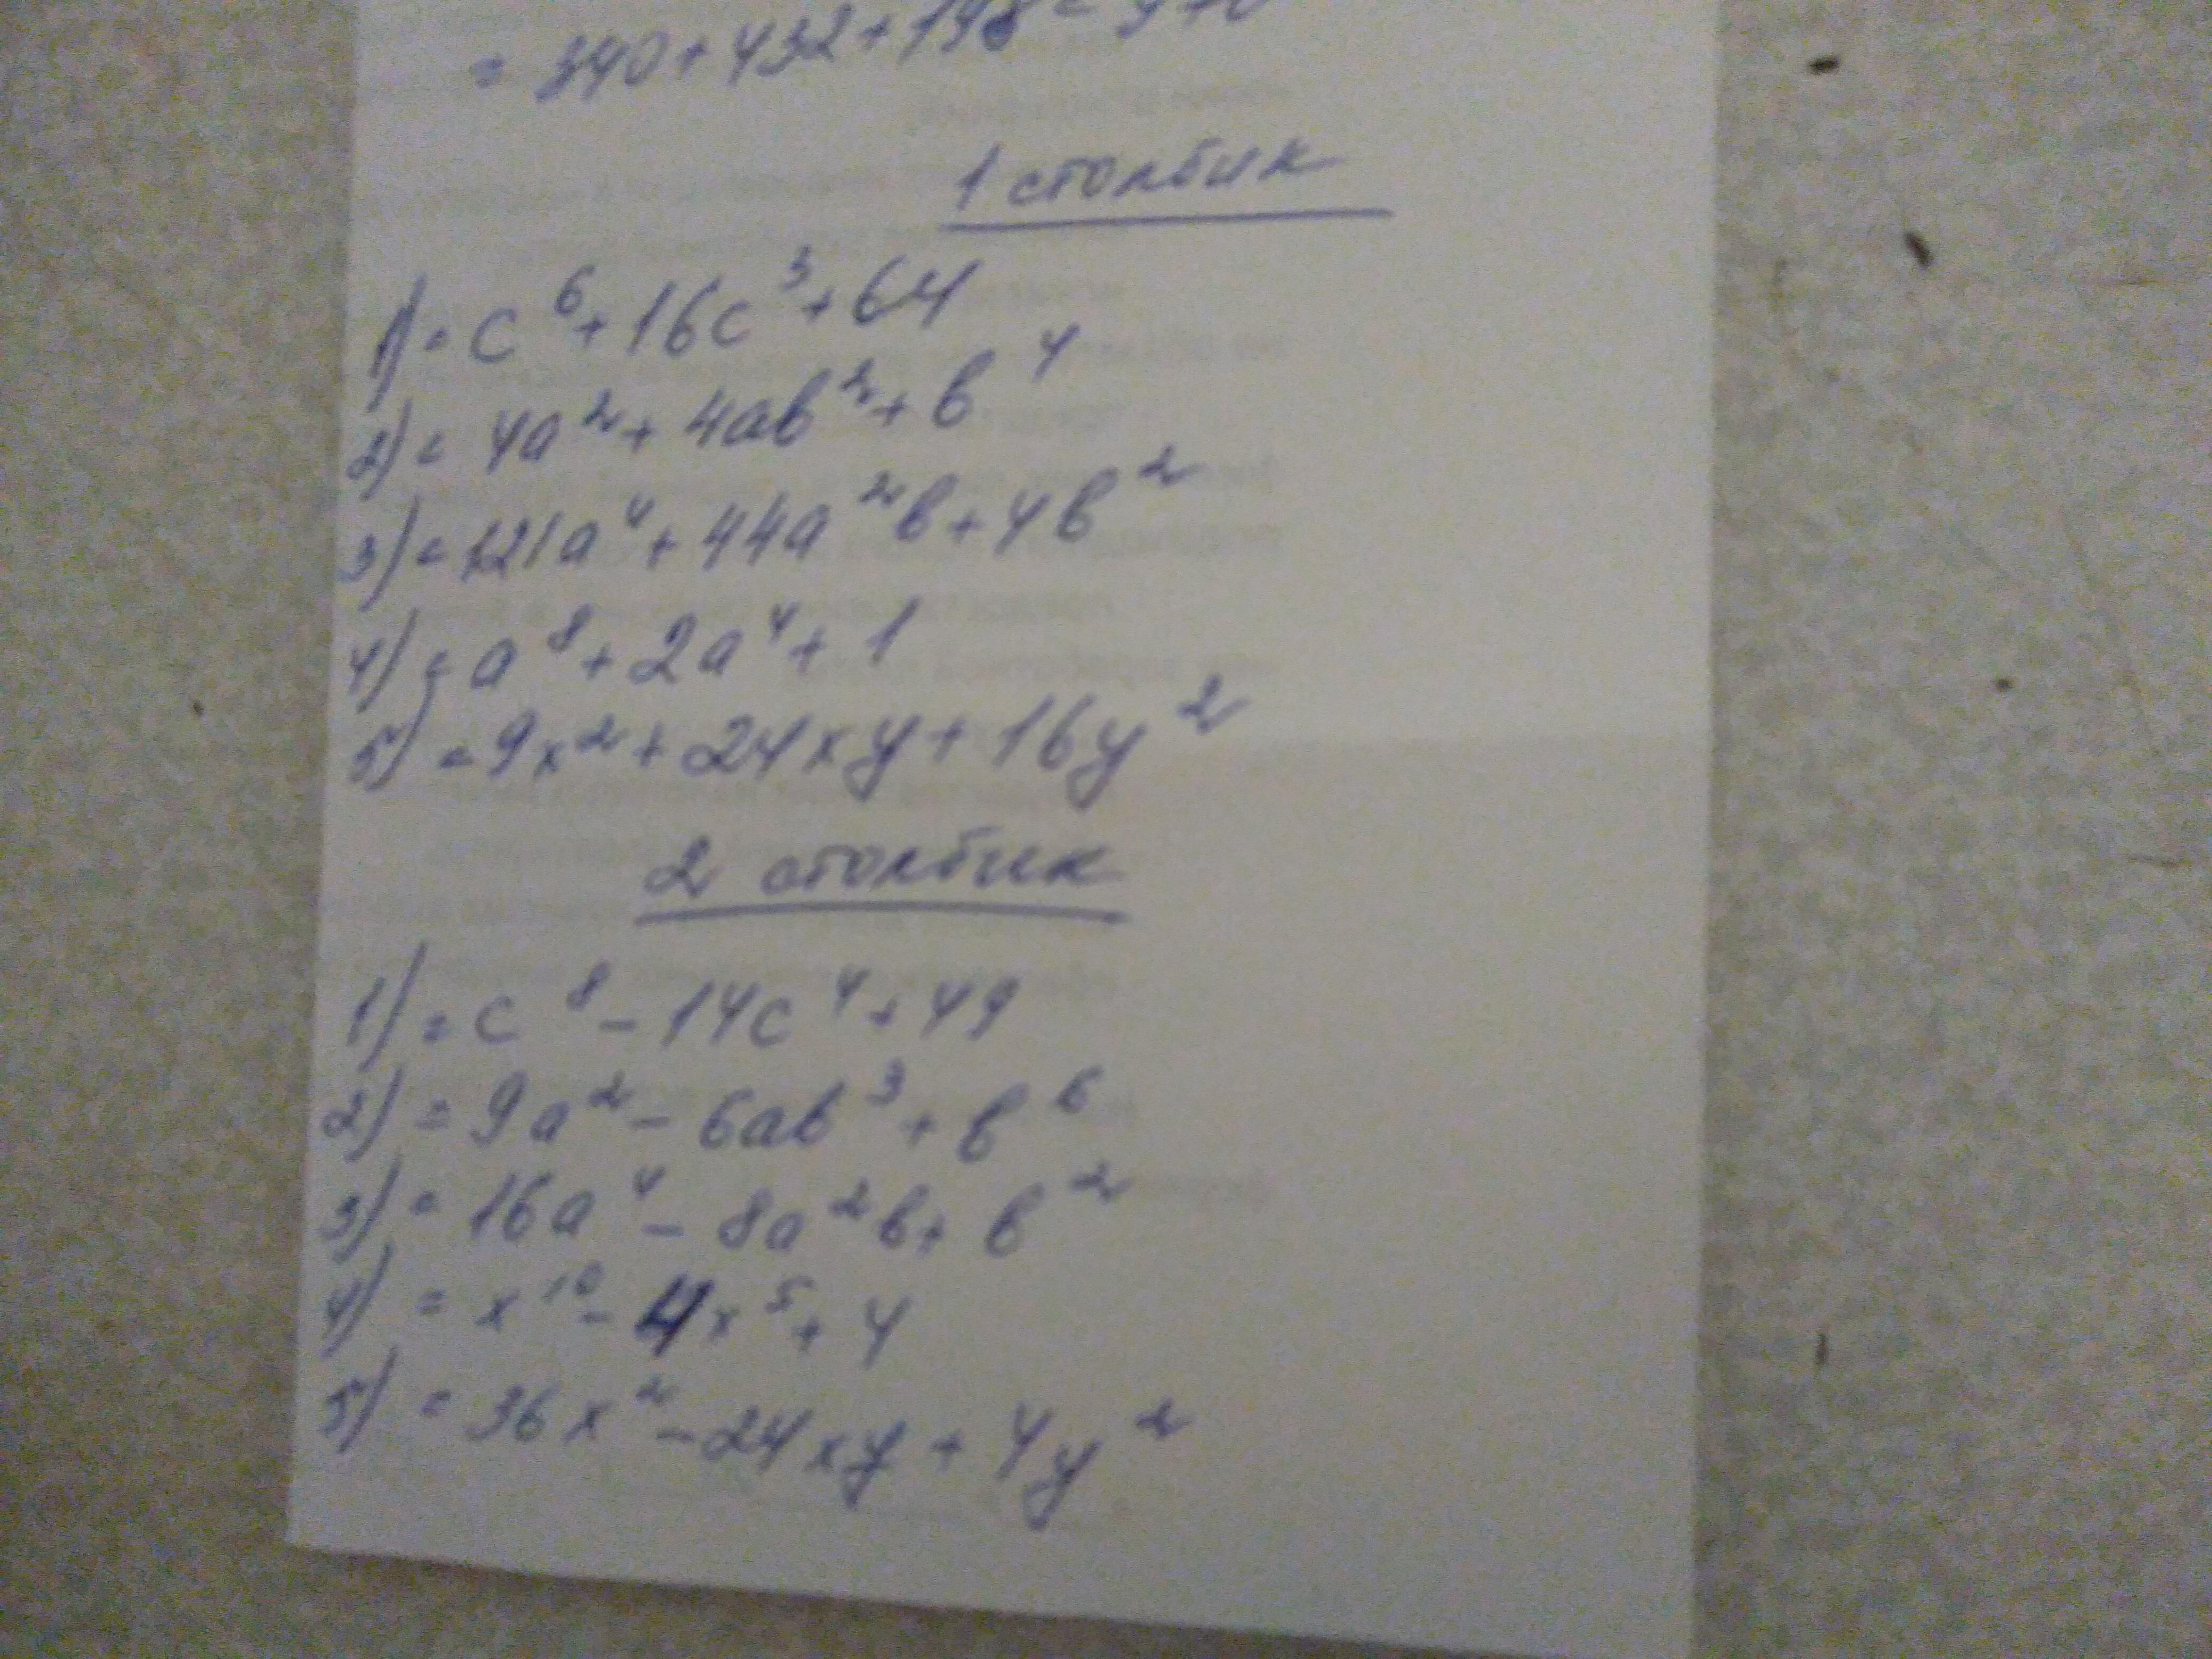 = 340+432+198=970
1 столбик
1) = c⁶+16c³+64
2) = 4a²+4ab²+b⁴
3) = 121a⁴+44a²b+4b²
4) = a⁸+2a⁴+1
5) = 9x²+24xy+16y²
2 столбик
1) = c⁸-14c⁴+49
2) = 9a²-6ab³+b⁶
3) = 16a⁴-8a²b+b²
4) = x¹⁰-4x⁵+4
5) = 36x²-24xy+4y²